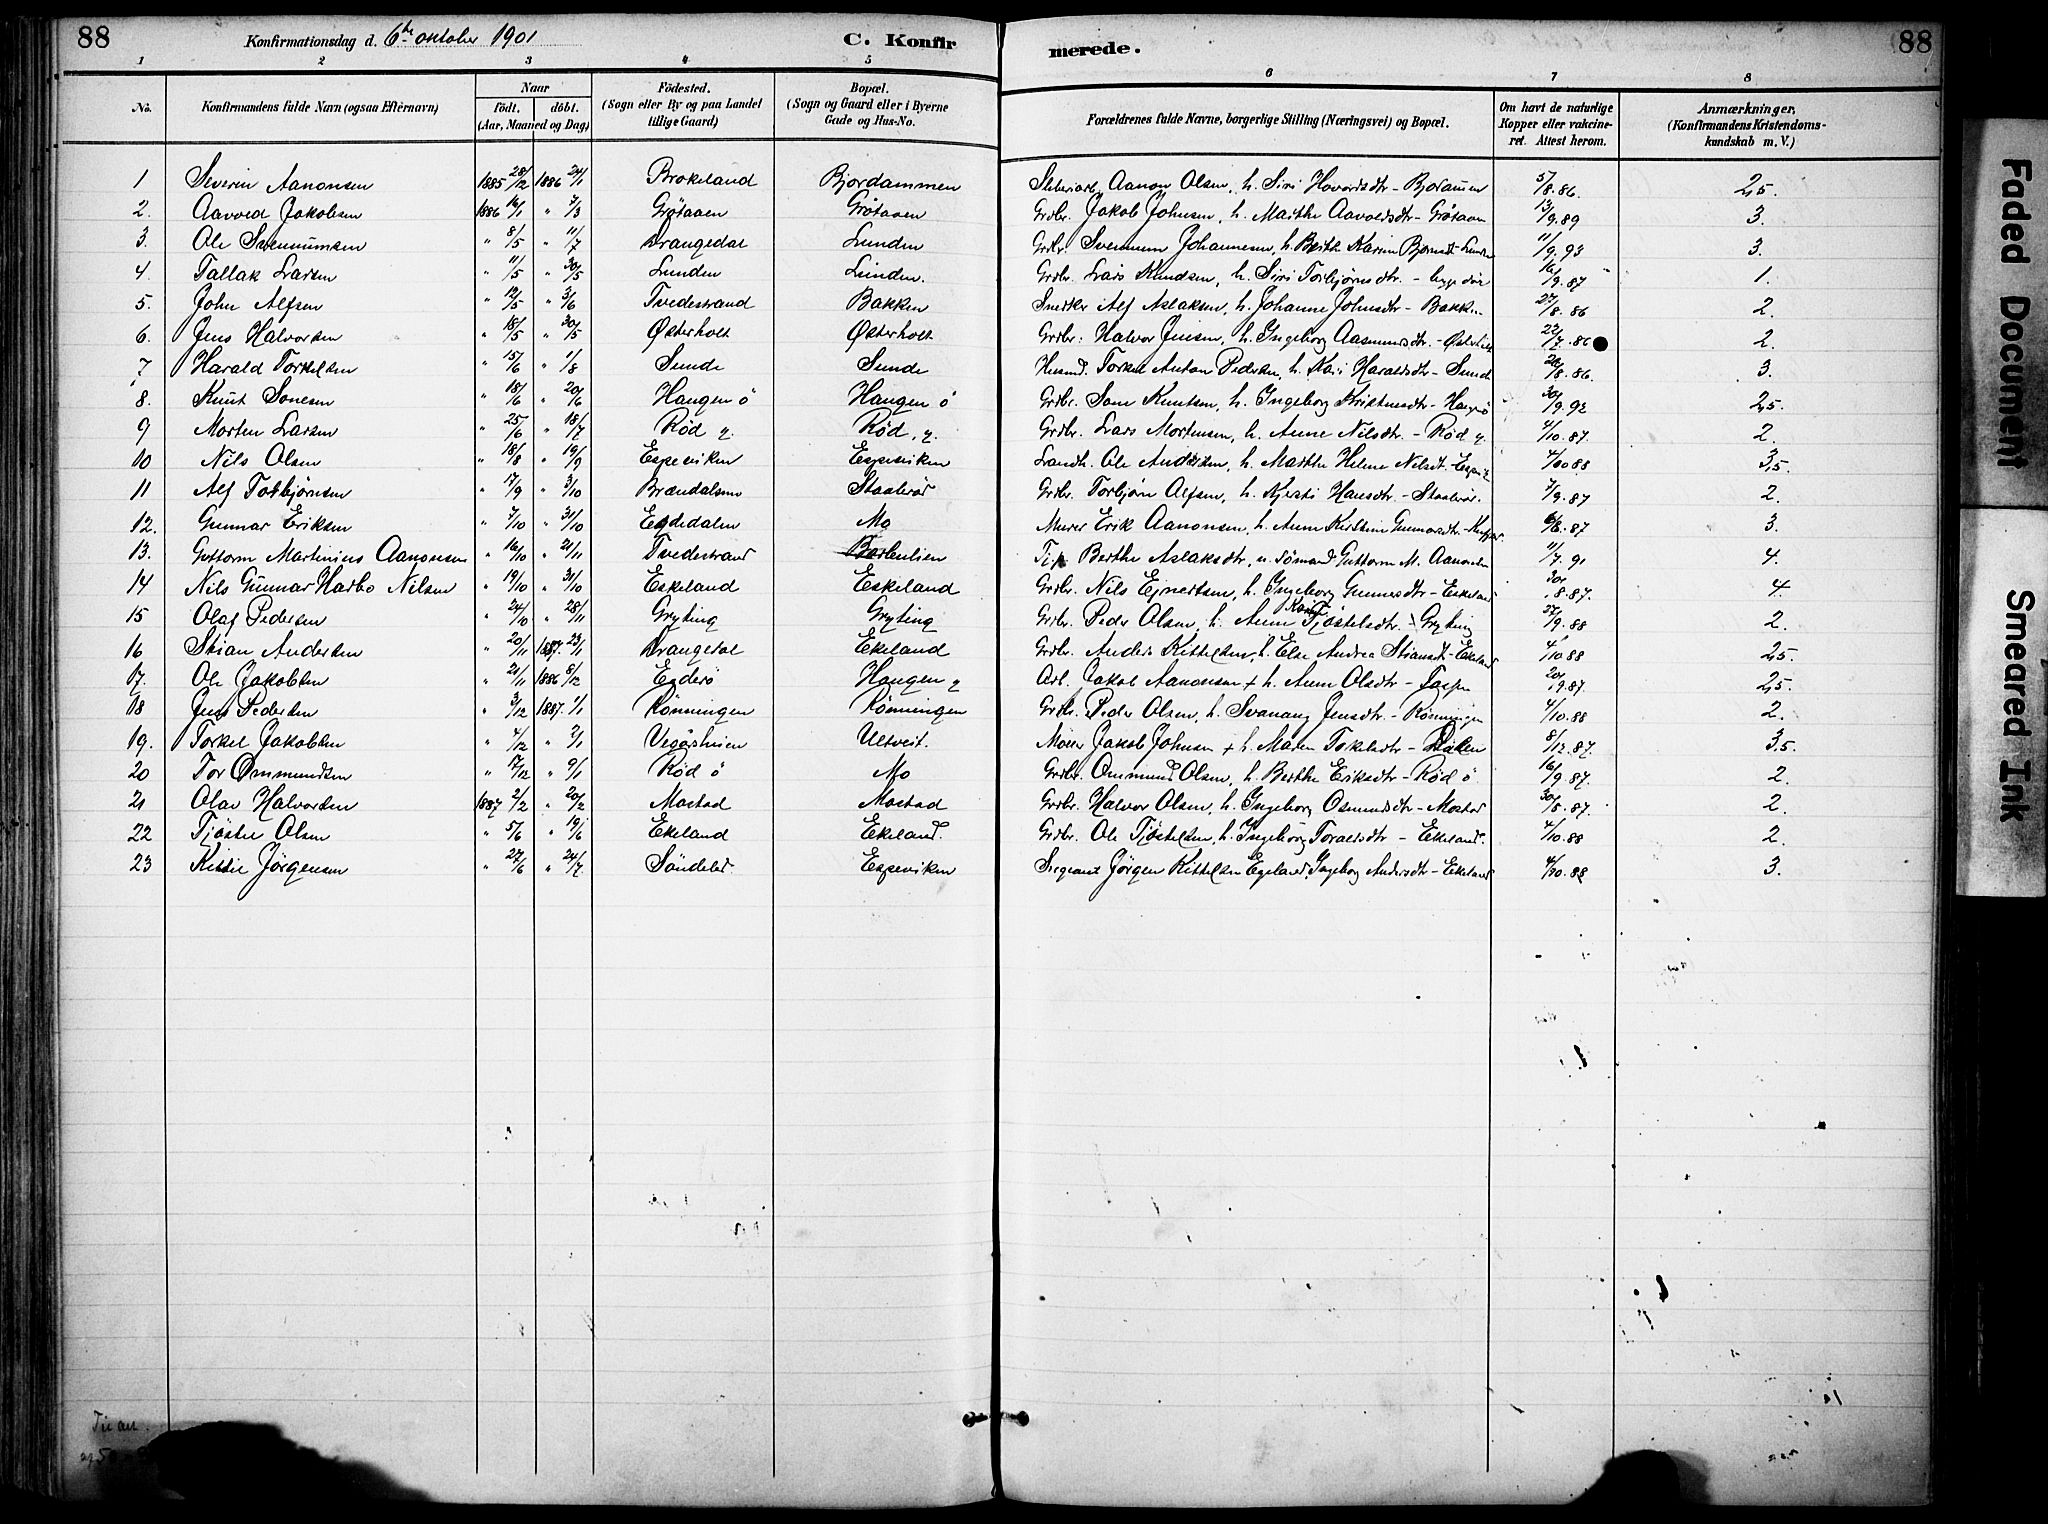 88 Konfirmationsdag d. 6te oktober 1901 C. Konfirmerede. 88
1 2 3 4 5 6 7 8
No. Konfirmandens fulde Navn (ogsaa Efternavn) Naar födt. döbt. (Aar, Maaned og Dag) Födested. (Sogn eller By og paa Landet tillige Gaard) Bopæl. (Sogn og Gaard eller i Byerne Gade og Hus-No. Forældrenes fulde Navne, borgerlige Stilling (Næringsvei) og Bopæl. Om havt de naturlige Kopper eller vakcineret. Attest herom. Anmærkninger, (Konfirmandens Kristendomskundskab m. V.)
1 Severin Aanonsen 1885 28/12 1886 24/1 Brokeland Bjordammen Aanon Olsen, h. Siri Hovardsdtr - 5/8.86. 2,5.
2. Aavold Jakobsen 1886 16/1 " 7/3 Grötaaen Grötaaen Grdbr. Jakob Johnsen, h. Marthe Aavoldsdtr - Grötaaen 13/9.89 3.
3. Ole Svennumsen " 8/5 " 11/7 Drangedal Lunden Grdbr. Svennum Johannesen, h. Berthe Karine 11/9.93 3.
4. Tallak Larsen " 11/5 " 30/5 Lunden Lunden. Grdbr. Lars Knudsen, h. Siri Torbjörnsdtr. - 16/9.87 1.
5. John Alfsen " 12/5 " 3/6 Tvedestrand Bakken Snedker Alf Aslaksen, h. Johanne Johnsdtr - 27/8.86 2.
6. Jens Halvorsen " 18/5 " 30/5 Østerholt Østerholt Grdbr. Halvor Jensen, h. Ingeborg Aasmundsdtr. - Østerholt 22/7.86 2.
7 Harald Torkelsen " 15/6 " 1/8 Sunde Sunde Husmd. Torkel Anton Pedersen, h. Kari Haraldsdtr - Sunde 20/8.86. 3.
8. Knut Sonesen " 18/6 " 20/6 Haugen ö Haugen ö Grdbr. Sone Knutsen, h. Ingeborg - Haugen ö 30/9.92 2,5.
9 Morten Larsen " 25/6 " 18/7 Röd y. Röd, y. Grdbr. Lars Mortensen, h. Anne Nilsdtr. - Röd y. 4/10.87. 2.
10 Nils Olsen " 18/8 " 19/9 Espeviken Espeviken Landh. Ole Andersen, h. Marthe Helene Nilsdt. - 4/10 88 3,5.
11 Alf Torbjörnsen " 17/9 " 3/10 Brændalsmo Staaleröd Grdbr. Torbjörn Alfsen, h. Kjersti Hansdtr. - Staaleröd. 7/9.87 2.
12. Gunnar Eriksen " 7/10 " 31/10 Egdedalen Mo Murer Erik Aanonsen, h. Anne Kirstine Gunnarsdtr - 6/8.87 3.
13. Guttorm Martinius Aanonsen " 16/10 " 21/11 Tvedestrand Berthe Aslaksdtr, u. Sömand Guttorm M. Aanonsen 11/7.91 4.
14 Nils Gunnar Harbo Nilsen " 19/10 " 31/10 Eskeland Eskeland Grdbr. Nils Ejnertsen, h. Ingeborg Gunnarsdtr - Eskeland 30/8.87. 4.
15 Olaf Pedersen " 24/10 " 28/11 Gryting Gryting Grdbr. Peder Olsen, h. Anne Kari Tjöstelsdtr. - Gryting 27/9.88 2.
16 Stian Andersen " 20/11 1887 23/1 Drangedal Ekeland Grdbr. Anders Kittelsen, h. Else Andrea Stiansdt - Ekeland 4/10 88 2,5.
17. Ole Jakobsen " 21/11 1886 8/12 Egderö Haugen y Arb. Jakob Aanonsen + h. Anne Olsdtr - 20/9 87. 2,5.
18 Jens Pedersen " 3/12 1887. 1/1 Rönningen Rönningen Grdbr. Peder Olsen, h. Svanaug Jensdtr. - Rönningen 4/10.88 2.
19. Torkel Jakobsen " 4/12 " 2/1 Vegösheien Ulltveit. Jakob Johnsen + h. Maren - 8/12.87. 3,5.
20 Tor Ommundsen " 17/12 " 9/1 Röd ö Mo Grdbr. Ommund Olsen, h. Berthe Eriksdtr - Röd ö 16/9.87. 2.
21 Olav Halvorsen 1887 2/2 " 20/2 Mostad Mostad Grdbr. Halvor Olsen, h. Ingeborg Osmundsdtr - Mostad 30/8.87. 2.
22 Tjöstel Olsen " 5/6 " 19/6 Ekeland Ekeland. Grdbr. Ole Tjöstelsen, h. Ingeborg Toraldsdtr - Ekeland. 4/10.88 2.
23 Kittil Jörgensen " 27/6 " 24/7 Söndeled Espeviken Sergeant Jörgen Kittelsen Egeland, Ingeborg Andersdtr - Ekeland 4/10.88 3.
Faded Document
Smeared Ink